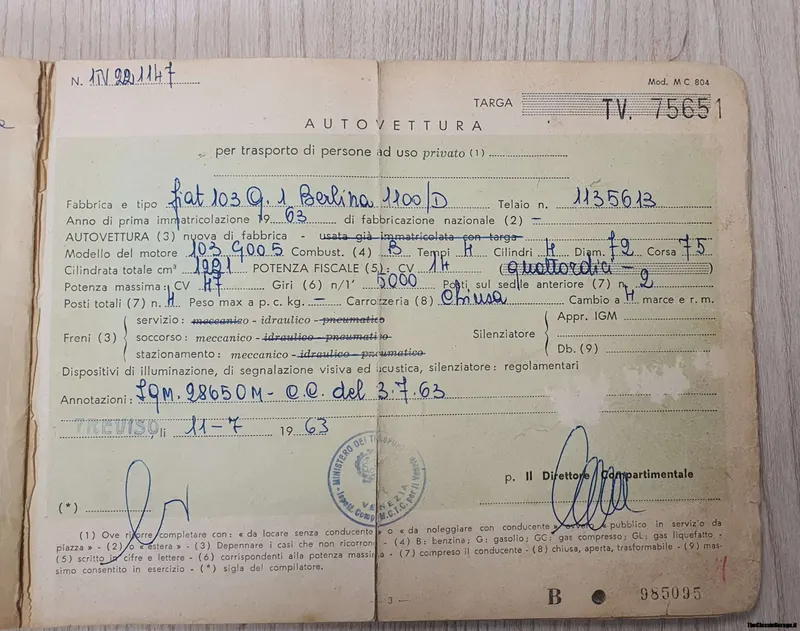 N. 1TV 221147
Mod. MC 804
TARGA TV. 75651
AUTOVETTURA
per trasporto di persone ad uso privato (1)
Fabbrica e tipo fiat 103 G. 1 Berlina 1100/D Telaio n. 1135613
Anno di prima immatricolazione 19 63 di fabbricazione nazionale (2) –
AUTOVETTURA (3) nuova di fabbrica - usata già immatricolata con targa
Modello del motore 103 G005 Combust. (4) B Tempi 4 Cilindri 4 Diam. 72 Corsa 75
Cilindrata totale cm³ 1221 POTENZA FISCALE (5): CV 14 (quattordici –)
Potenza massima: CV 47 Giri (6) n/1' 5000 Posti sul sedile anteriore (7) n. 2
Posti totali (7) n. 4 Peso max a p. c. kg. – Carrozzeria (8) Chiusa Cambio a 4 marce e r. m.
Freni (3)
servizio: meccanico - idraulico - pneumatico
soccorso: meccanico - idraulico - pneumatico
stazionamento: meccanico - idraulico - pneumatico
Silenziatore
Appr. IGM
Db. (9)
Dispositivi di illuminazione, di segnalazione visiva ed acustica, silenziatore: regolamentari
Annotazioni: IGM. 28650M - O.C. del 3.7.63
TREVISO, li 11-7 19 63
MINISTERO DEI TRASPORTI
VENEZIA
p. Il Direttore Compartimentale
(*)
(1) Ove ricorre completare con: « da locare senza conducente » o « da noleggiare con conducente » ovvero « pubblico in servizio da
piazza » - (2) o « estera » - (3) Depennare i casi che non ricorrono - (4) B: benzina; G: gasolio; GC: gas compresso; GL: gas liquefatto -
(5) scritto in cifre e lettere - (6) corrispondenti alla potenza massima - (7) compreso il conducente - (8) chiusa, aperta, trasformabile - (9) mas-
simo consentito in esercizio - (*) sigla del compilatore.
— 3 —
B 985095
TheClassicGarage.it